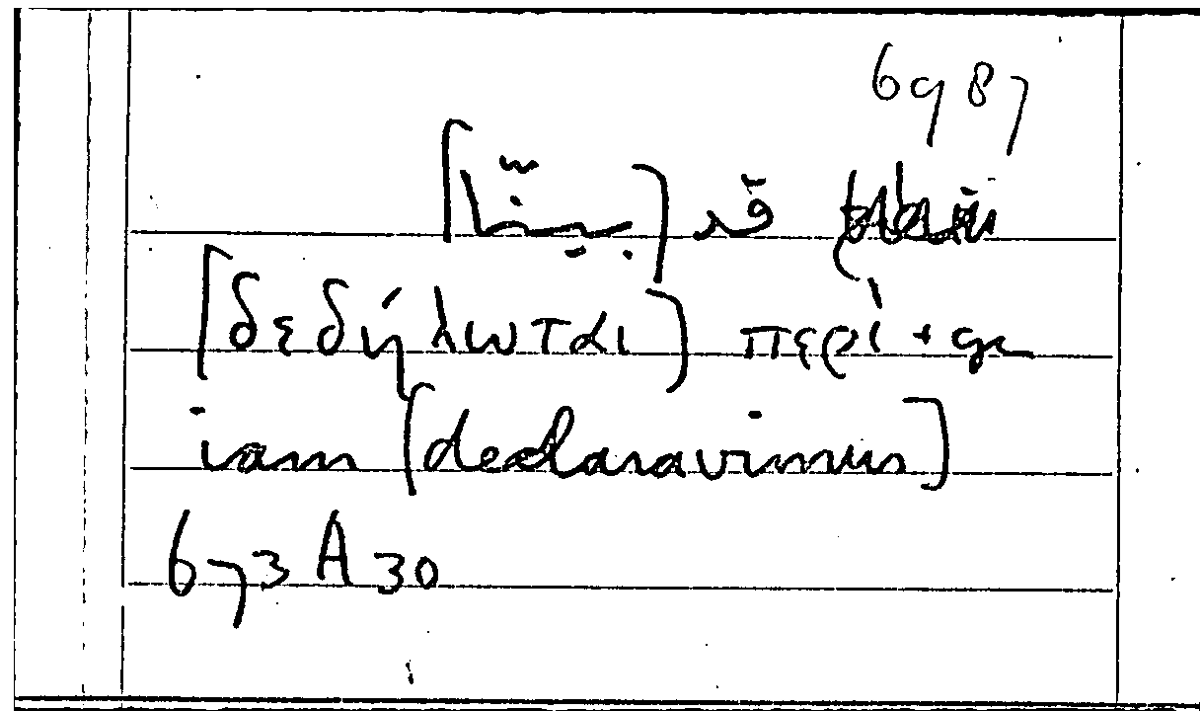 6987
قد [بيّنّا]
[δεδήλωται] περί + gen
iam [declaravimus]
673 A 30